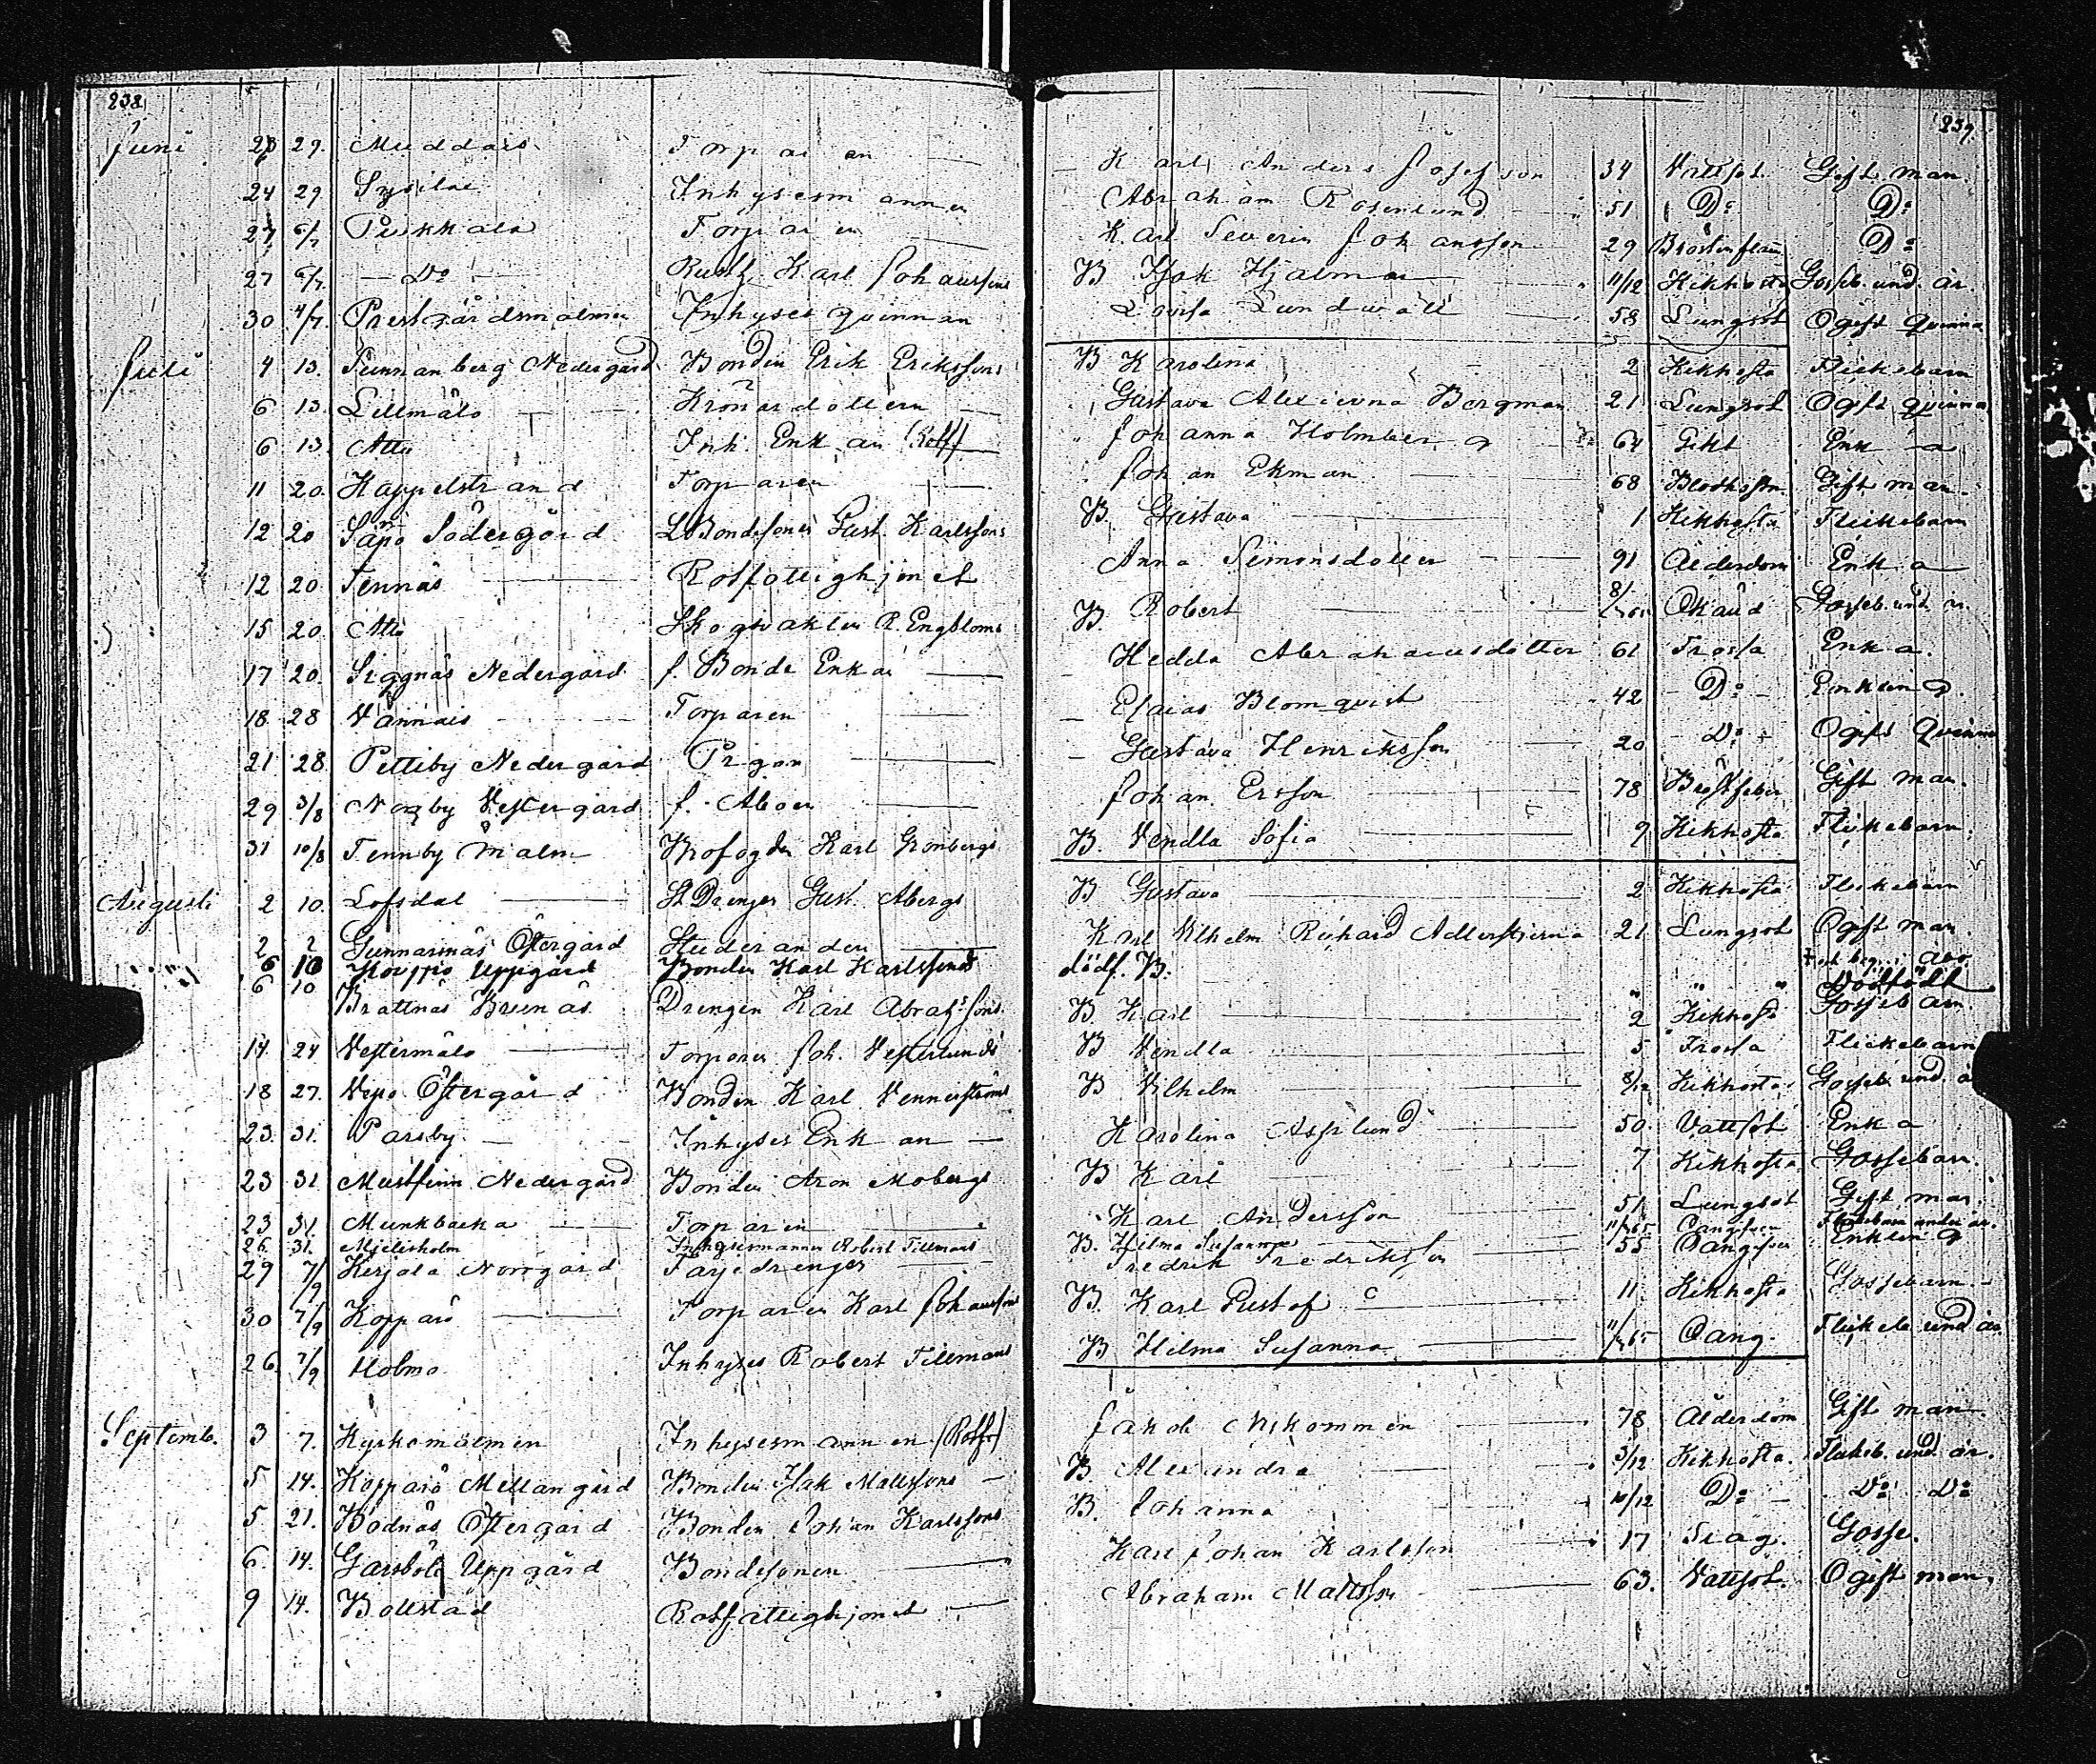 238
239
Juni 23 29. Muddais Torparen Karl Anders Josefsson 34 Vattsot Gift man.
24 29 Sysilax Inhysesmannen Abraham Rosenlund 51 Do Do
27 6/7 Pukkala Torparen Karl Severin Johansson 29 Bröstinflam Do
27 6/7. Do Karl Johanssons B Isak Hjalmar 11/12 Kikhosta Gosseb. und. år
30 4/7. Prestgårdsmalmen Inhyses qvinnan Lovisa Lundwall 58 Lungsot Ogift Qvinna
Juli 4 13. Finnanberg Nedergård Bonden Erik Erikssons B Karolina 2 Kikhosta Flickebarn
6 13. Lillmälö Dottern Gustava Bergman 21 Lungsot Ogift qvinna
6 13. Attu Inh. Enkan (Rotf) Johanna Holmberg 64 Gikt Enka
11 20. Kappelstrand Torparen Johan Ekman 68 Blodhostn. Gift man.
12 20 Söpö Södergård Bondesonen Gust. Karlssons B. Gustava 1 Kikhosta Flickebarn
12 20. Tennäs Rotfattighjonet Anna Simonsdotter 91 Ålderdom Enka
15 20. Attu Skogvakten R. Engbloms B Robert Okänd Gosseb. und år.
17 20. Siggnäs Nedergård f. Bonde Enkan Hedda Abrahamsdotter 61 Frossa Enka.
18. 28 Vännais Torparen Esaias Blomqvist 42 Do Enkling.
21 28. Pettiby Nedergård Pigan Gustava Henriksson 20 Do Ogift Qvinna
29 3/8 Norrby Vestergård f. Åboen Johan Ersson 78 Bröstfeber Gift man.
31 10/8 Tennby Malm Rofogden Karl Grönbergs B. Vendla Sofia 9 Kikhosta Flickebarn.
Augusti 2 10. Lofsdal Drengen Gust. Åbergs B Gustava 2 Kikhosta Flickebarn
2 2 Gunnarsnäs Östergård Studeranden Karl Vilhelm Richard Adlerstjerna 21 Lungsot Ogift man.
6 10 Kouppo Uppgård Bonden Karl Karlssons dödf. B. " " " Dödfödt
6 10 Brattnäs Drengen Karl Abrahssons B Karl 2 Kikhosta Gossebarn.
14. 24 Vestermälö Torparen Joh. Vesterlunds B Vendla 5 Frossa Flickebarn
18 27. Vepo Östergård Bonden Karl Vennerströms B Vilhelm 8/12 Kikhosta. Gosseb. und. å
23. 31. Parsby. Inhyses Enkan Karolina Asplund 50. Vattsot Enka
23 31. Mustfinn Nedergård Bonden Aron Mobergs B Karl 7 Kikhosta Gossebarn.
23 31. Munkbacka Torparen Karl Andersson 51 Lungsot Gift man.
26. 31. Mjelisholm Inhysesmannen Robert Tillmans B. Hilma Susanna
29 7/9 Kirjala Norrgård Fredrik Fredriksson 55 Enkling
30 7/9 Kopparö Torparen Karl Johanssons B. Karl Gustaf 11. Kikhosta Gossebarn.
26. 7/9 Holmo Inhyses Robert Tillmans B Hilma Susanna Flickeb und år
Septemb. 3 7. Kyrkomalmen Inhysesmannen (Rotf) Jakob 78 Ålderdom Gift man.
5 14. Kopparö Mellangård Bonden Isak Mattssons B. Alexandra 3/12 Kikhosta. Flickeb. und. år.
5 21. Bodnäs Östergård Bonden Johan Karlssons B. Johanna 10/12 Do Do Do
6. 14. Garsböle Uppgård Bondesonen Karl Johan Karlsson 17 Slag. Gosse.
9 14. Bollstad Rotfattighjonet Abraham Mattsson 63. Vattsot. Ogift man.